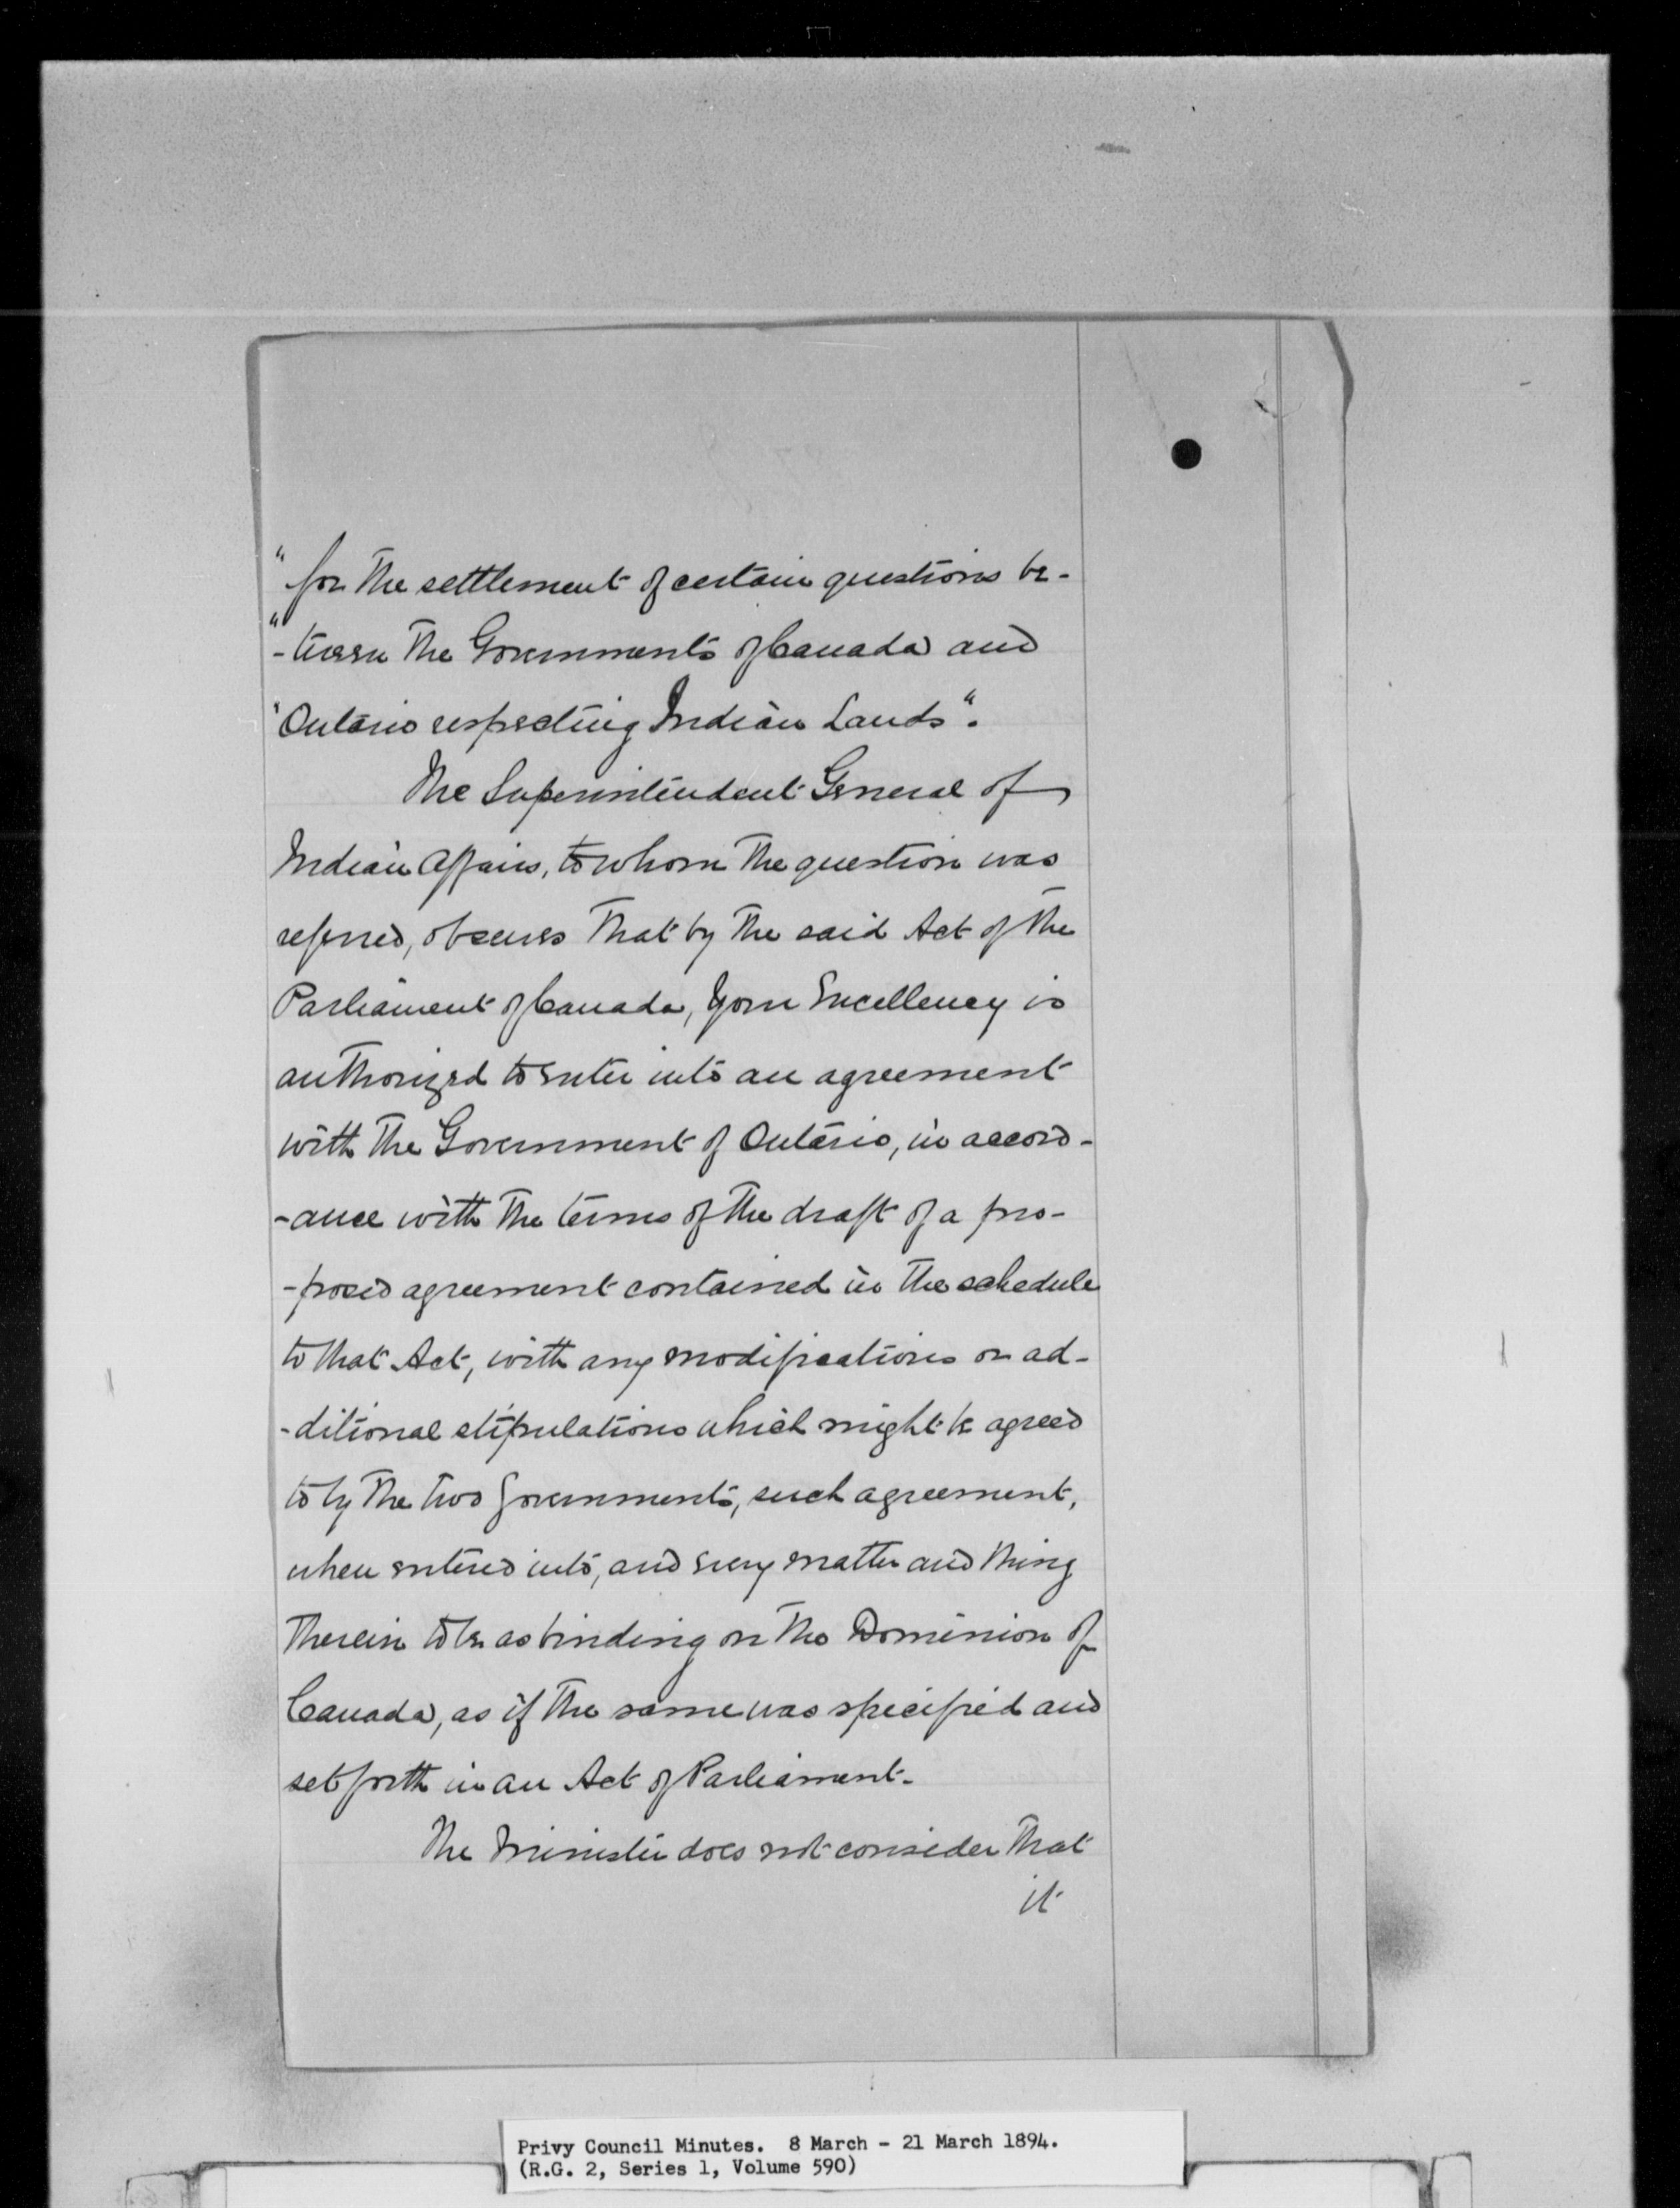 "for the settlement of certain questions be-
"-tween the Governments of Canada and
"Ontario respecting Indian Lands".
The Superintendent General of
Indian Affairs, to whom the question was
referred, observes that by the said Act of the
Parliament of Canada, Your Excellency is
authorized to enter into an agreement
with the Government of Ontario, in accord-
-ance with the terms of the draft of a pro-
-posed agreement contained in the schedule
to that Act, with any modifications or ad-
-ditional stipulations which might be agreed
to by the two Governments, such agreement,
when entered into, and every matter and thing
therein to be as binding on the Dominion of
Canada, as if the same was specified and
set forth in an Act of Parliament.
The Minister does not consider that
it
Privy Council Minutes. 8 March - 21 March 1894.
(R.G. 2, Series 1, Volume 590)